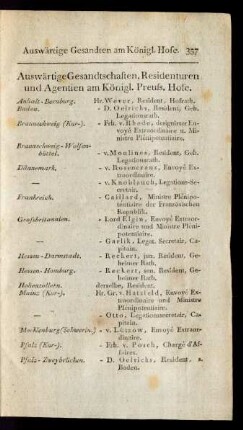 Auswärtige Gesandten am Königl. Hofe. 337
Auswärtige Gesandtschaften, Residenturen
und Agentien am Königl. Preuss. Hofe.
Anhalt-Bernburg. Hr. Wever, Resident, Hofrath.
Baden. - D. Oelrichs, Resident, Geh.
Legationsrath.
Braunschweig (Kur-). - Frh. v. Rhede, designirter En-
voyé Extraordinaire u. Mi-
nistre Plénipotentiaire.
Braunschweig-Wolfen-
büttel. - v. Moulines, Resident, Geh.
Legationsrath.
Dänemark. - v. Rosencrans, Envoyé Ex-
traordinaire.
— - v. Knobloch, Legations-Secre-
tair.
Frankreich. - Caillard, Ministre Plénipo-
tentiaire der französischen
Republik.
Grosbritannien. - Lord Elgin, Envoyé Extraor-
dinaire und Ministre Pleni-
potentiaire.
— - Garlik, Legat. Secretair, Ca-
pitain.
Hessen-Darmstadt. - Reckert, jun. Resident, Ge-
heimer Rath.
Hessen-Homburg. - Reckert, sen. Resident, Ge-
heimer Rath.
Hohenzollern. derselbe, Resident.
Mainz (Kur-). Hr. Gr. v. Hatzfeld, Envoyé Ex-
traordinaire und Ministre
Plénipotentiaire.
— - Otto, Legationssecretair, Ca-
pitain.
Mecklenburg (Schwerin.) - v. Lützow, Envoyé Extraor-
dinaire.
Pfalz (Kur-). - Frh. v. Posch, Chargé d'Af-
faires.
Pfalz-Zweybrücken. - D. Oelrichs, Resident, s.
Baden.